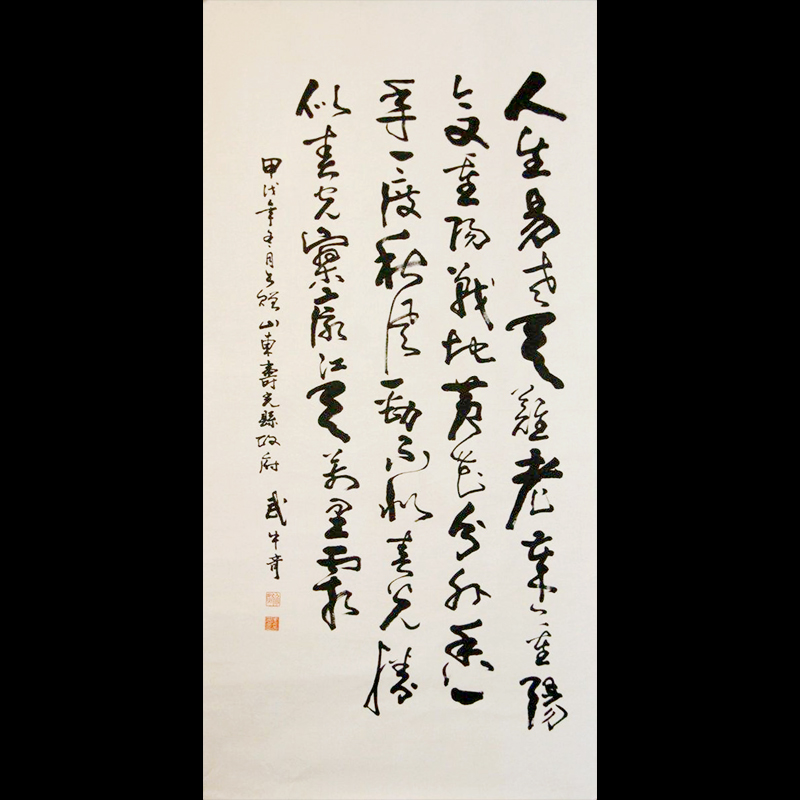 人生易老天難老歲々重陽
今又重陽戰地黄花分外香一
年一度秋風勁不似春光勝
似春光寥廓江天萬里霜
甲戌年冬月書贈山東壽光縣政府 武中奇